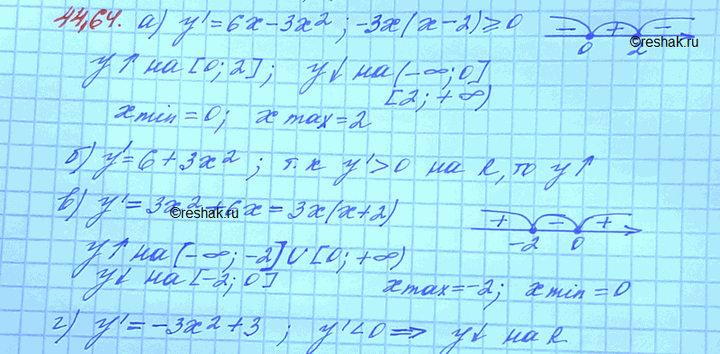 44.64. а) y' = 6x - 3x²; -3x(x-2) ≥ 0
- + -
0 2
©reshak.ru
y↑ на [0; 2]; y↓ на (-∞; 0]
[2; +∞)
xmin = 0; xmax = 2
б) y' = 6 + 3x²; т.к y' > 0 на R, то y↑
в) y' = 3x² + 6x = 3x(x+2)
©reshak.ru
+ - +
-2 0
y↑ на (-∞; -2] ∪ [0; +∞)
y↓ на [-2; 0]
xmax = -2; xmin = 0
г) y' = -3x² + 3; y' < 0 ⟹ y↓ на R